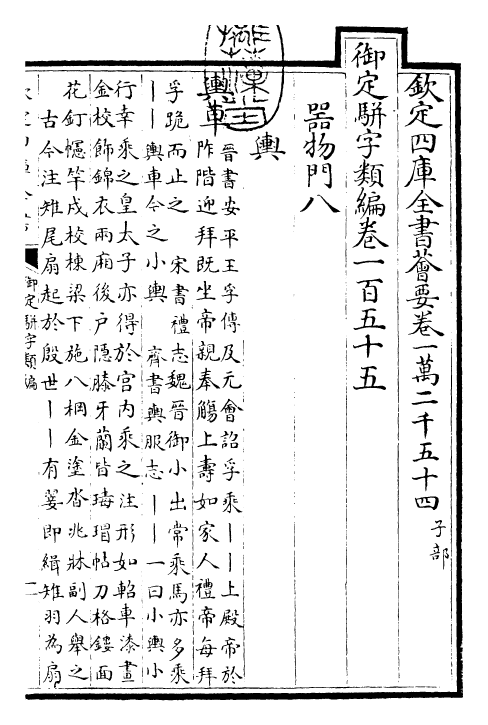 欽定四庫全書薈要卷一萬二千五十四 子部
御定駢字類編卷一百五十五
器物門八
輿
輿車
晉書安平王孚傳及元會詔孚乘丨丨上殿帝於
阼階迎拜既坐帝親奉觴上壽如家人禮帝每拜
孚跪而止之 宋書禮志魏晉御小出常乘馬亦多乘
丨丨輿車今之小輿 齊書輿服志丨丨一曰小輿小
行幸乘之皇太子亦得於宫内乘之 注形如軺車漆畫
金校飾錦衣兩廂後户隱膝牙蘭皆瑇瑁帖刀格鏤面
花釘幰竿戍校棟梁下施八棡金塗沓兆牀副人舉之
古今注雉尾扇起於殷世丨丨有翣即緝雉羽為扇
御定駢字類編